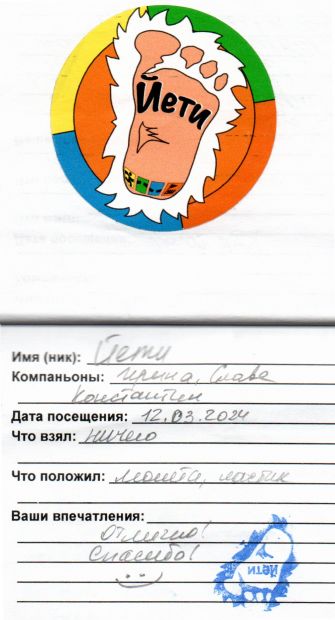 Йети
Имя (ник): Йети
Компаньоны: Ирина, Слава
Константин
Дата посещения: 12.03.2024
Что взял: ничего
Что положил: монета, ластик
Ваши впечатления:
Отлично!
Спасибо!
Йети